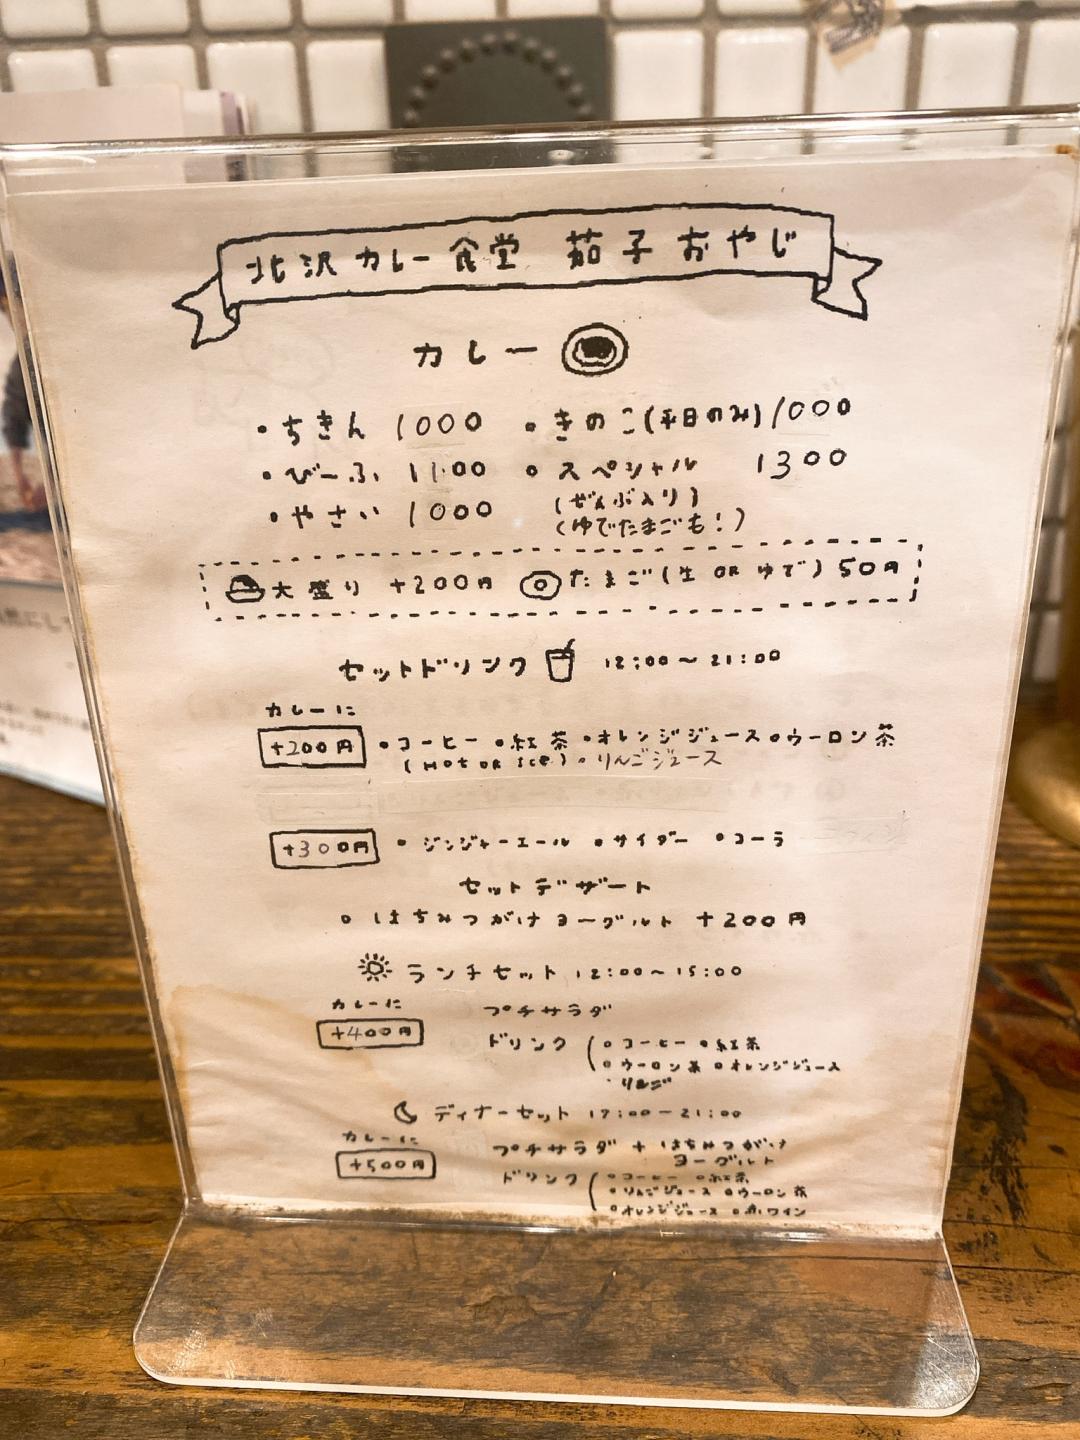 北沢カレー食堂 茄子おやじ
カレー
・ちきん 1000 ・きのこ(平日のみ)1000
・びーふ 1100 ・スペシャル 1300
・やさい 1000 (ぜんぶ入り)
(ゆでたまごも!)
大盛り +200円 たまご(生 OR ゆで) 50円
セットドリンク 12:00〜21:00
カレーに
+200円 ・コーヒー ・紅茶 ・オレンジジュース ・ウーロン茶
(HOT OR ICE) ・りんごジュース
+300円 ・ジンジャーエール ・サイダー ・コーラ
セットデザート
・はちみつがけヨーグルト +200円
ランチセット 12:00〜15:00
カレーに プチサラダ
+400円 ドリンク (・コーヒー ・紅茶
・ウーロン茶 ・オレンジジュース
・りんご
ディナーセット 17:00−21:00
カレーに プチサラダ + はちみつがけ
+500円 ヨーグルト
ドリンク (・コーヒー ・紅茶
・りんごジュース ・ウーロン茶
・オレンジジュース ・赤ワイン